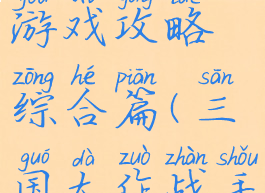 游戏攻略
zōng hé piān sān
综合篇(三
guó dà zuò zhàn shǒu
国大作战手